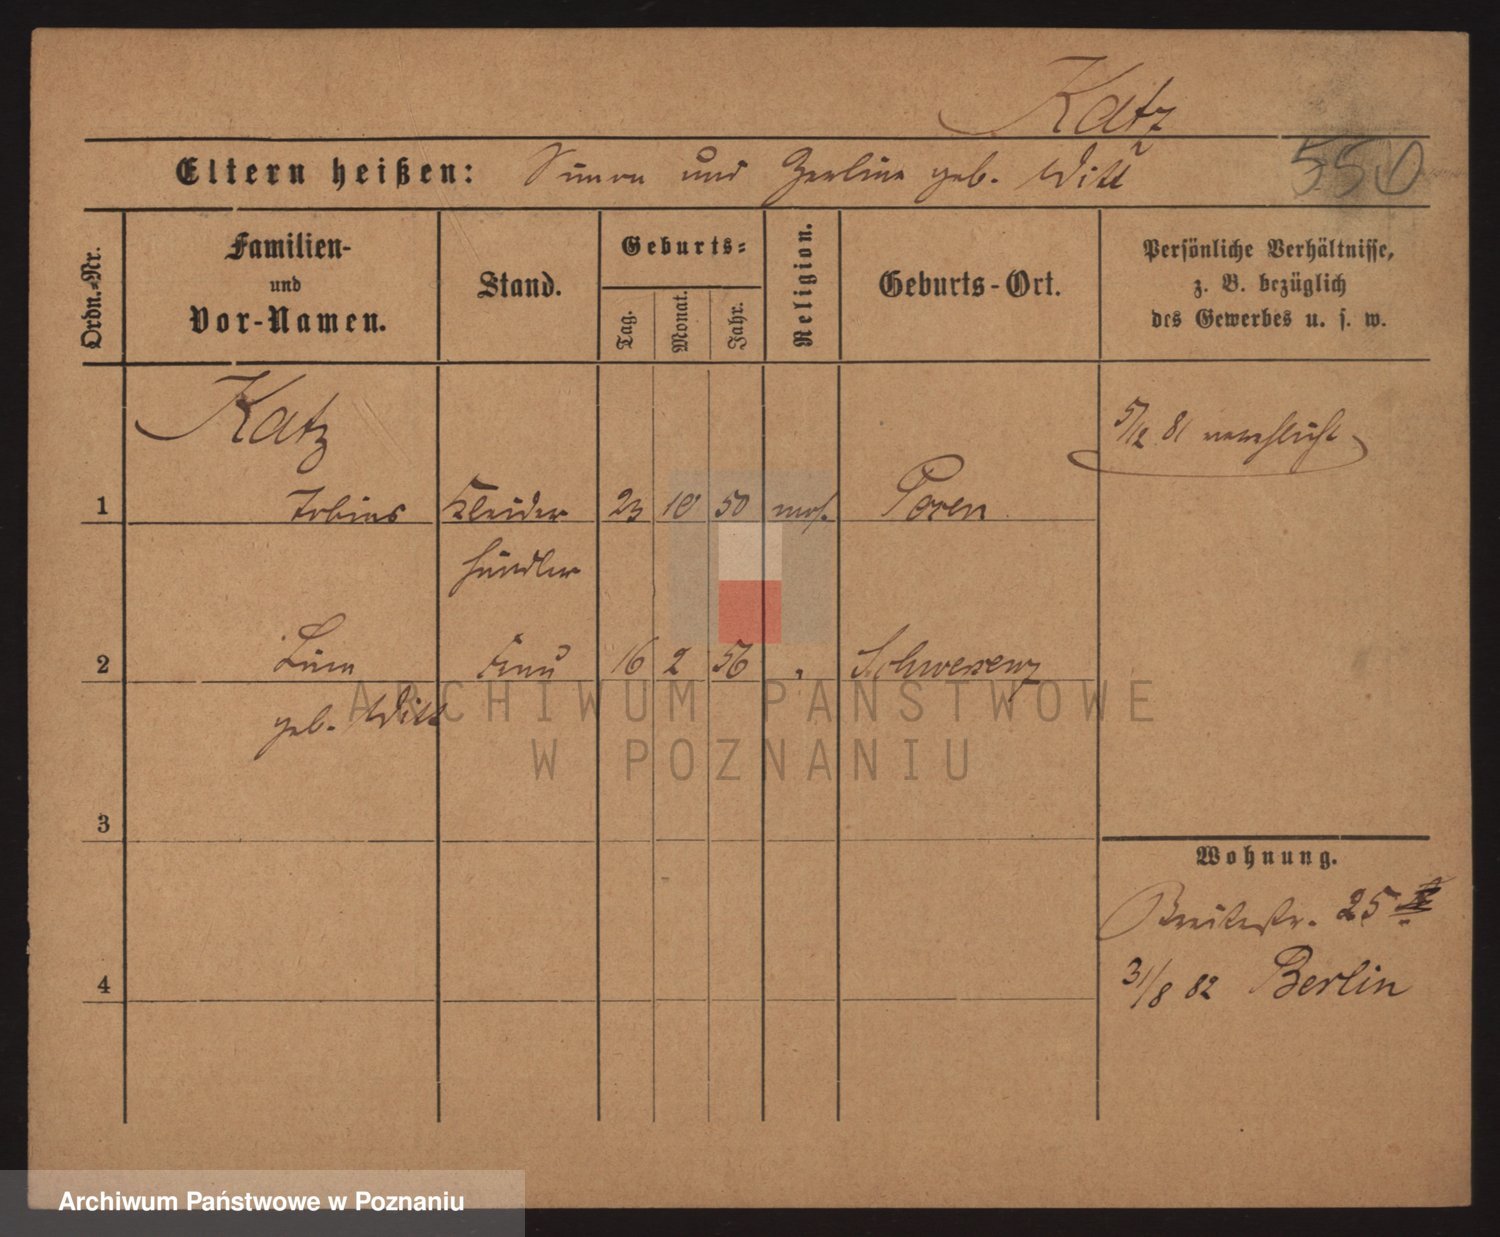 Katz
Eltern heißen: Simon und Zerline geb. Witt
550
Ordn.-Nr.
Familien-
und
Vor-Namen.
Stand.
Geburts-
Tag.
Monat.
Jahr.
Religion.
Geburts-Ort.
Persönliche Verhältnisse,
z. B. bezüglich
des Gewerbes u. s. w.
Katz
5/2 81 verehlicht
1 Tobias Kleider 23 10 50 mos. Posen
händler
2 Frau 16 2 56 " Schwersenz
geb. Witt
3
Wohnung.
Breitestr. 25
4
31/8 82 Berlin
ARCHIWUM PAŃSTWOWE
W POZNANIU
Archiwum Państwowe w Poznaniu